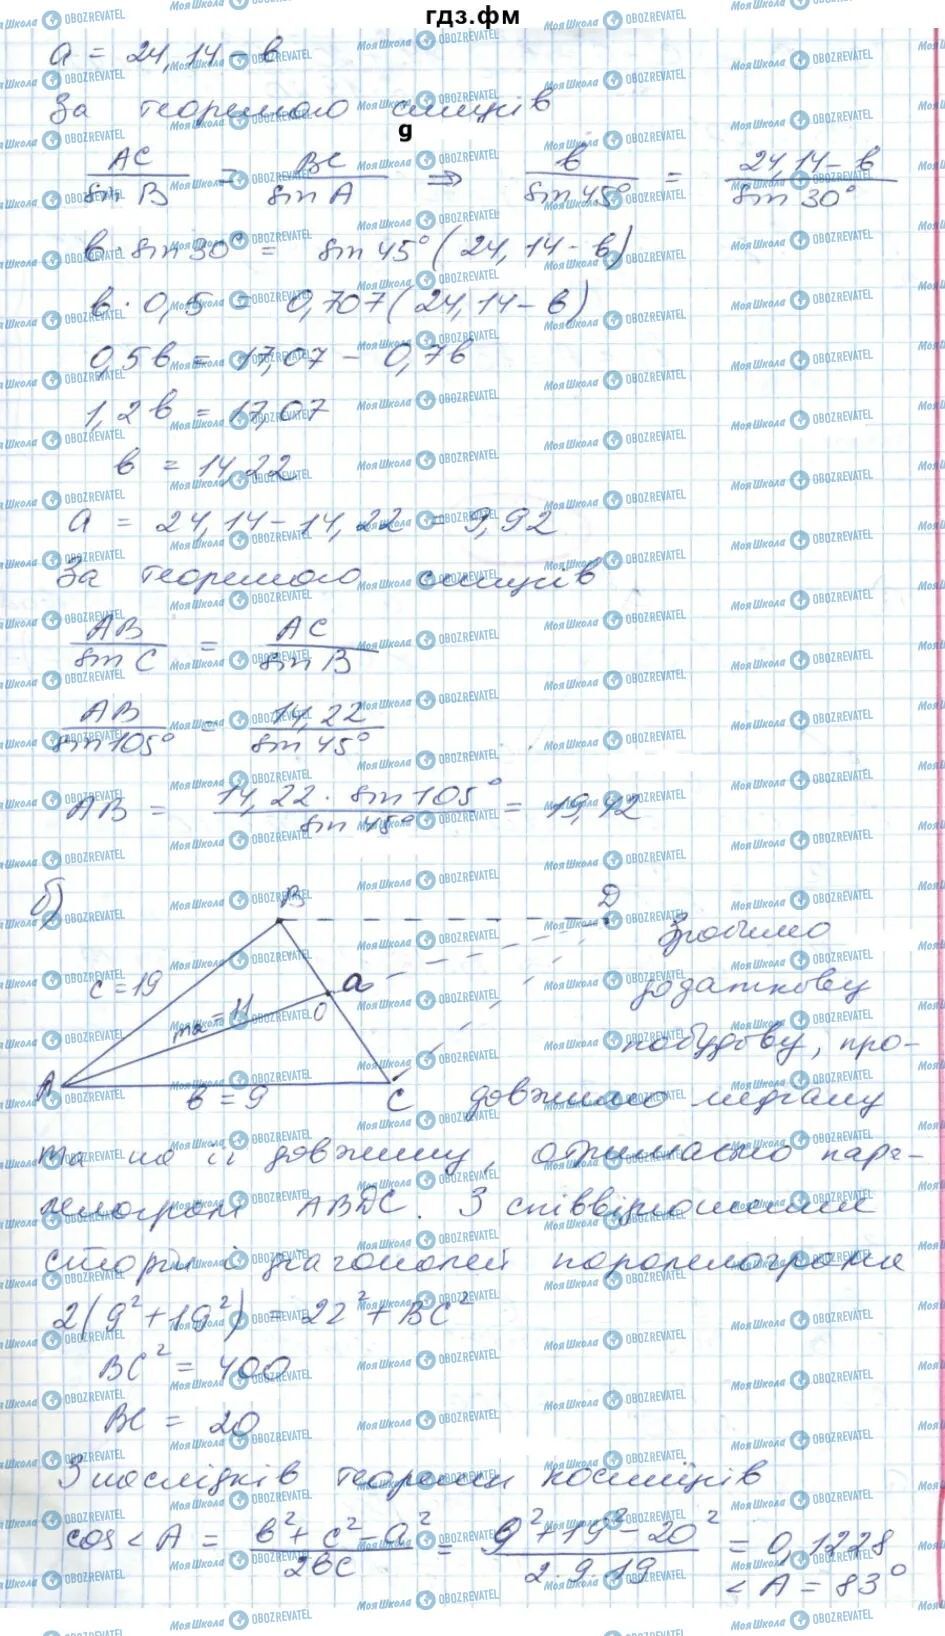 гдз.фм
a = 24,14 - в
За теоремою синусів
g
AC/sin B = BC/sin A ⇒ в/sin 45° = 24,14 - в/sin 30°
в · sin 30° = sin 45° (24,14 - в)
в · 0,5 = 0,707 (24,14 - в)
0,5 в = 17,07 - 0,7 в
1,2 в = 17,07
в = 14,22
a = 24,14 - 14,22 = 9,92
За теоремою синусів
AB/sin C = AC/sin B
AB/sin 105° = 14,22/sin 45°
AB = 14,22 · sin 105°/sin 45° = 19,42
б)
B
D
Зробимо
c = 19
a
додаткову
ma = 11
O
побудову, про-
A
в = 9
C
довжимо медіану
та на її довжину, отримаємо пара-
лелограм ABDC. З співвідношення
сторін і діагоналей паралелограма
2(9² + 19²) = 22² + BC²
BC² = 400
BC = 20
З наслідків теореми косинусів
cos < A = в² + c² - a²/2вc = 9² + 19² - 20²/2·9·19 = 0,1228
< A = 83°
Моя Школа OBOZREVATEL